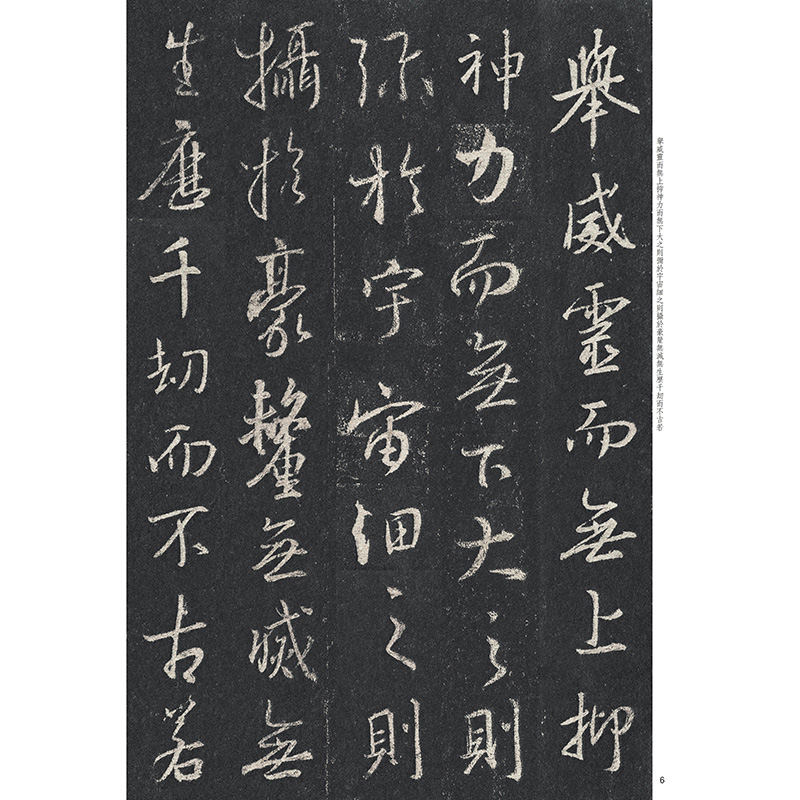 舉威靈而無上抑
神力而無下大之則
彌於宇宙細之則
攝於豪釐無滅無
生歷千劫而不古若
舉威靈而無上抑神力而無下大之則彌於宇宙細之則攝於豪釐無滅無生歷千劫而不古若
6